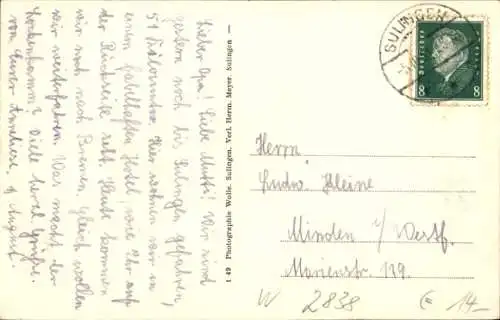 Lieber Opa! Liebe Mutti! Wir sind
gestern noch bis Sulingen gefahren,
51 Kilometer. Hier wohnen wir in
einem fabelhaften Hotel, wie Ihr auf
der Rückseite seht. Heute kommen
wir noch nach Bremen. Gleich wollen
wir weiterfahren. Was macht der
Viele herzl. Grüße.
von Eurer Anneliese.
August.
1 49 Photographie Wolle. Sulingen. Verl. Herm. Meyer. Sulingen —
SULINGEN
Deutsches
8 8
Herrn
Ludw. Kleine
Minden i/Westf.
Marienstr. 139.
W 2838
€ 14.—